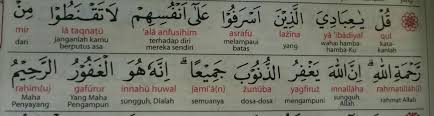 قُلْ يٰعِبَادِيَ الَّذِيْنَ اَسْرَفُوْا عَلٰٓى اَنْفُسِهِمْ لَا تَقْنَطُوْا مِنْ
mir lā taqnaṭū 'alā anfusihim asrafū lażīna yā 'ibādiyal qul
dari janganlah kamu terhadap diri melampaui yang wahai hamba- kata-
berputus asa mereka sendiri batas hamba-Ku kanlah
رَّحْمَةِ اللّٰهِ ۗ اِنَّ اللّٰهَ يَغْفِرُ الذُّنُوْبَ جَمِيْعًا ۗ اِنَّهٗ هُوَ الْغَفُوْرُ الرَّحِيْمُ
raḥīm(u) gafūrur innahū huwal jamī'ā(n) żunūba yagfiruż innallāha raḥmatillāh(i)
Maha Yang Maha sungguh, Dialah semuanya dosa-dosa mengampuni sungguh, rahmat Allah
Penyayang Pengampun Allah